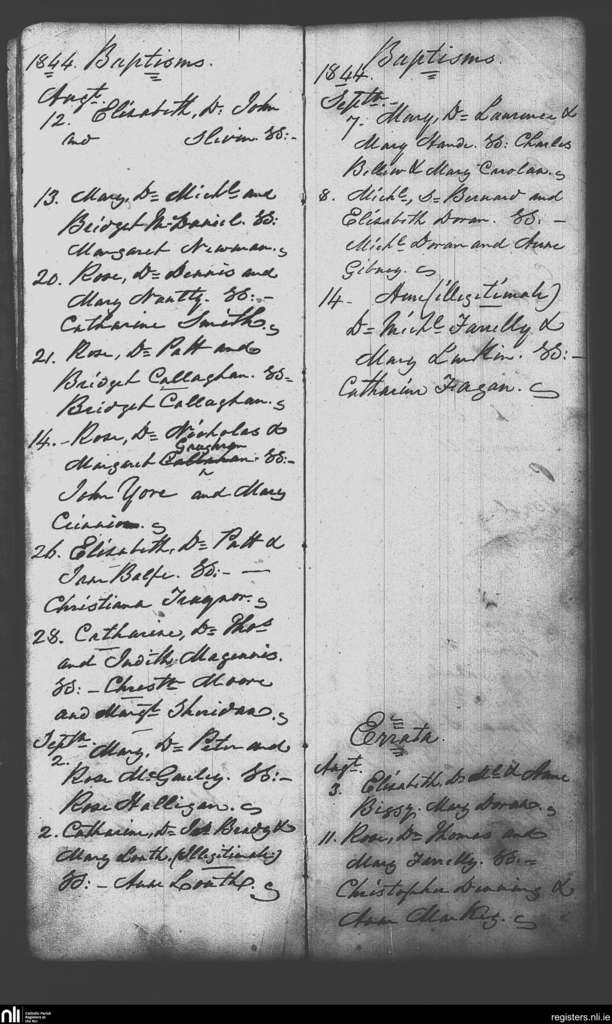 1844. Baptisms.
Augt.
12. Elisabeth, D= John
and Slevin. SS:-
13. Mary, D= Michl and
Bridget McDaniel. SS:
Margaret Newman.
20. Rose, D= Dennis and
Mary Nautty. SS:-
Catharine Smith.
21. Rose, D= Patt and
Bridget Callaghan. SS=
Bridget Callaghan.
14.- Rose, D= Nicholas &
Gaughran
Margaret Callahan. SS:-
John Yore and Mary
26. Elisabeth, D= Patt &
Jane Balfe. SS:-
Christiana Traynor.
28. Catharine, D= Thos
and Judith Magennis.
SS:- Christr Moore
and Margt Sheridan.
Septr.
2. Mary, D= Peter and
Rose McGauley. SS:-
Rose Halligan.
2. Catharine, D= Jas Brady &
Mary Louth. (Illegitimate)
SS:- Anne Louth.
1844. Baptisms.
Septr.
7. Mary, D= Laurence &
Mary Hande. SS: Charles
Bellew & Mary Carolan.
8. Michl, S= Bernard and
Elisabeth Doran. SS:-
Michl Doran and Anne
Gibney.
14- Anne (illegitimate)
D= Michl Farrelly &
Mary Larkin. SS:-
Catharine Fagan.
Errata.
Augt.
3. Elisabeth, D= & Anne
Biggy. Mary Doran.
11. Rose, D= Thomas and
Mary Farrelly. SS:-
Christopher Dunning &
Anne Markey.
nli Catholic Parish
Registers at
the NLI
registers.nli.ie